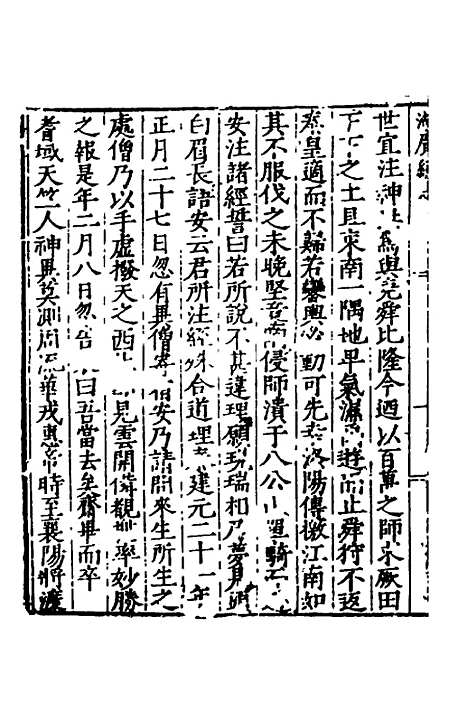 湖廣總志
世宜注神 爲與堯舜比隆今迺以百萬之師求厥田
下下之土且東南一隅地卑氣濕 遊而止舜狩不返
秦皇適而不歸若鑾輿必動可先 洛陽傳檄江南如
其不服伐之未晩堅 侵師潰于八公山 騎
安注諸經誓曰若所說不甚違理願現瑞相乃夢見
白眉長語安云君所注經殊合道理 建元二十一年
正月二十七日忽有異僧寄 安乃請問來生所生之
處僧乃以手虛撥天之西北 見雲開備觀 率妙勝
之報是年二月八日忽告 曰吾當去矣齋畢而卒
耆域天竺人神異莫測周流華戎 常時至襄陽將渡